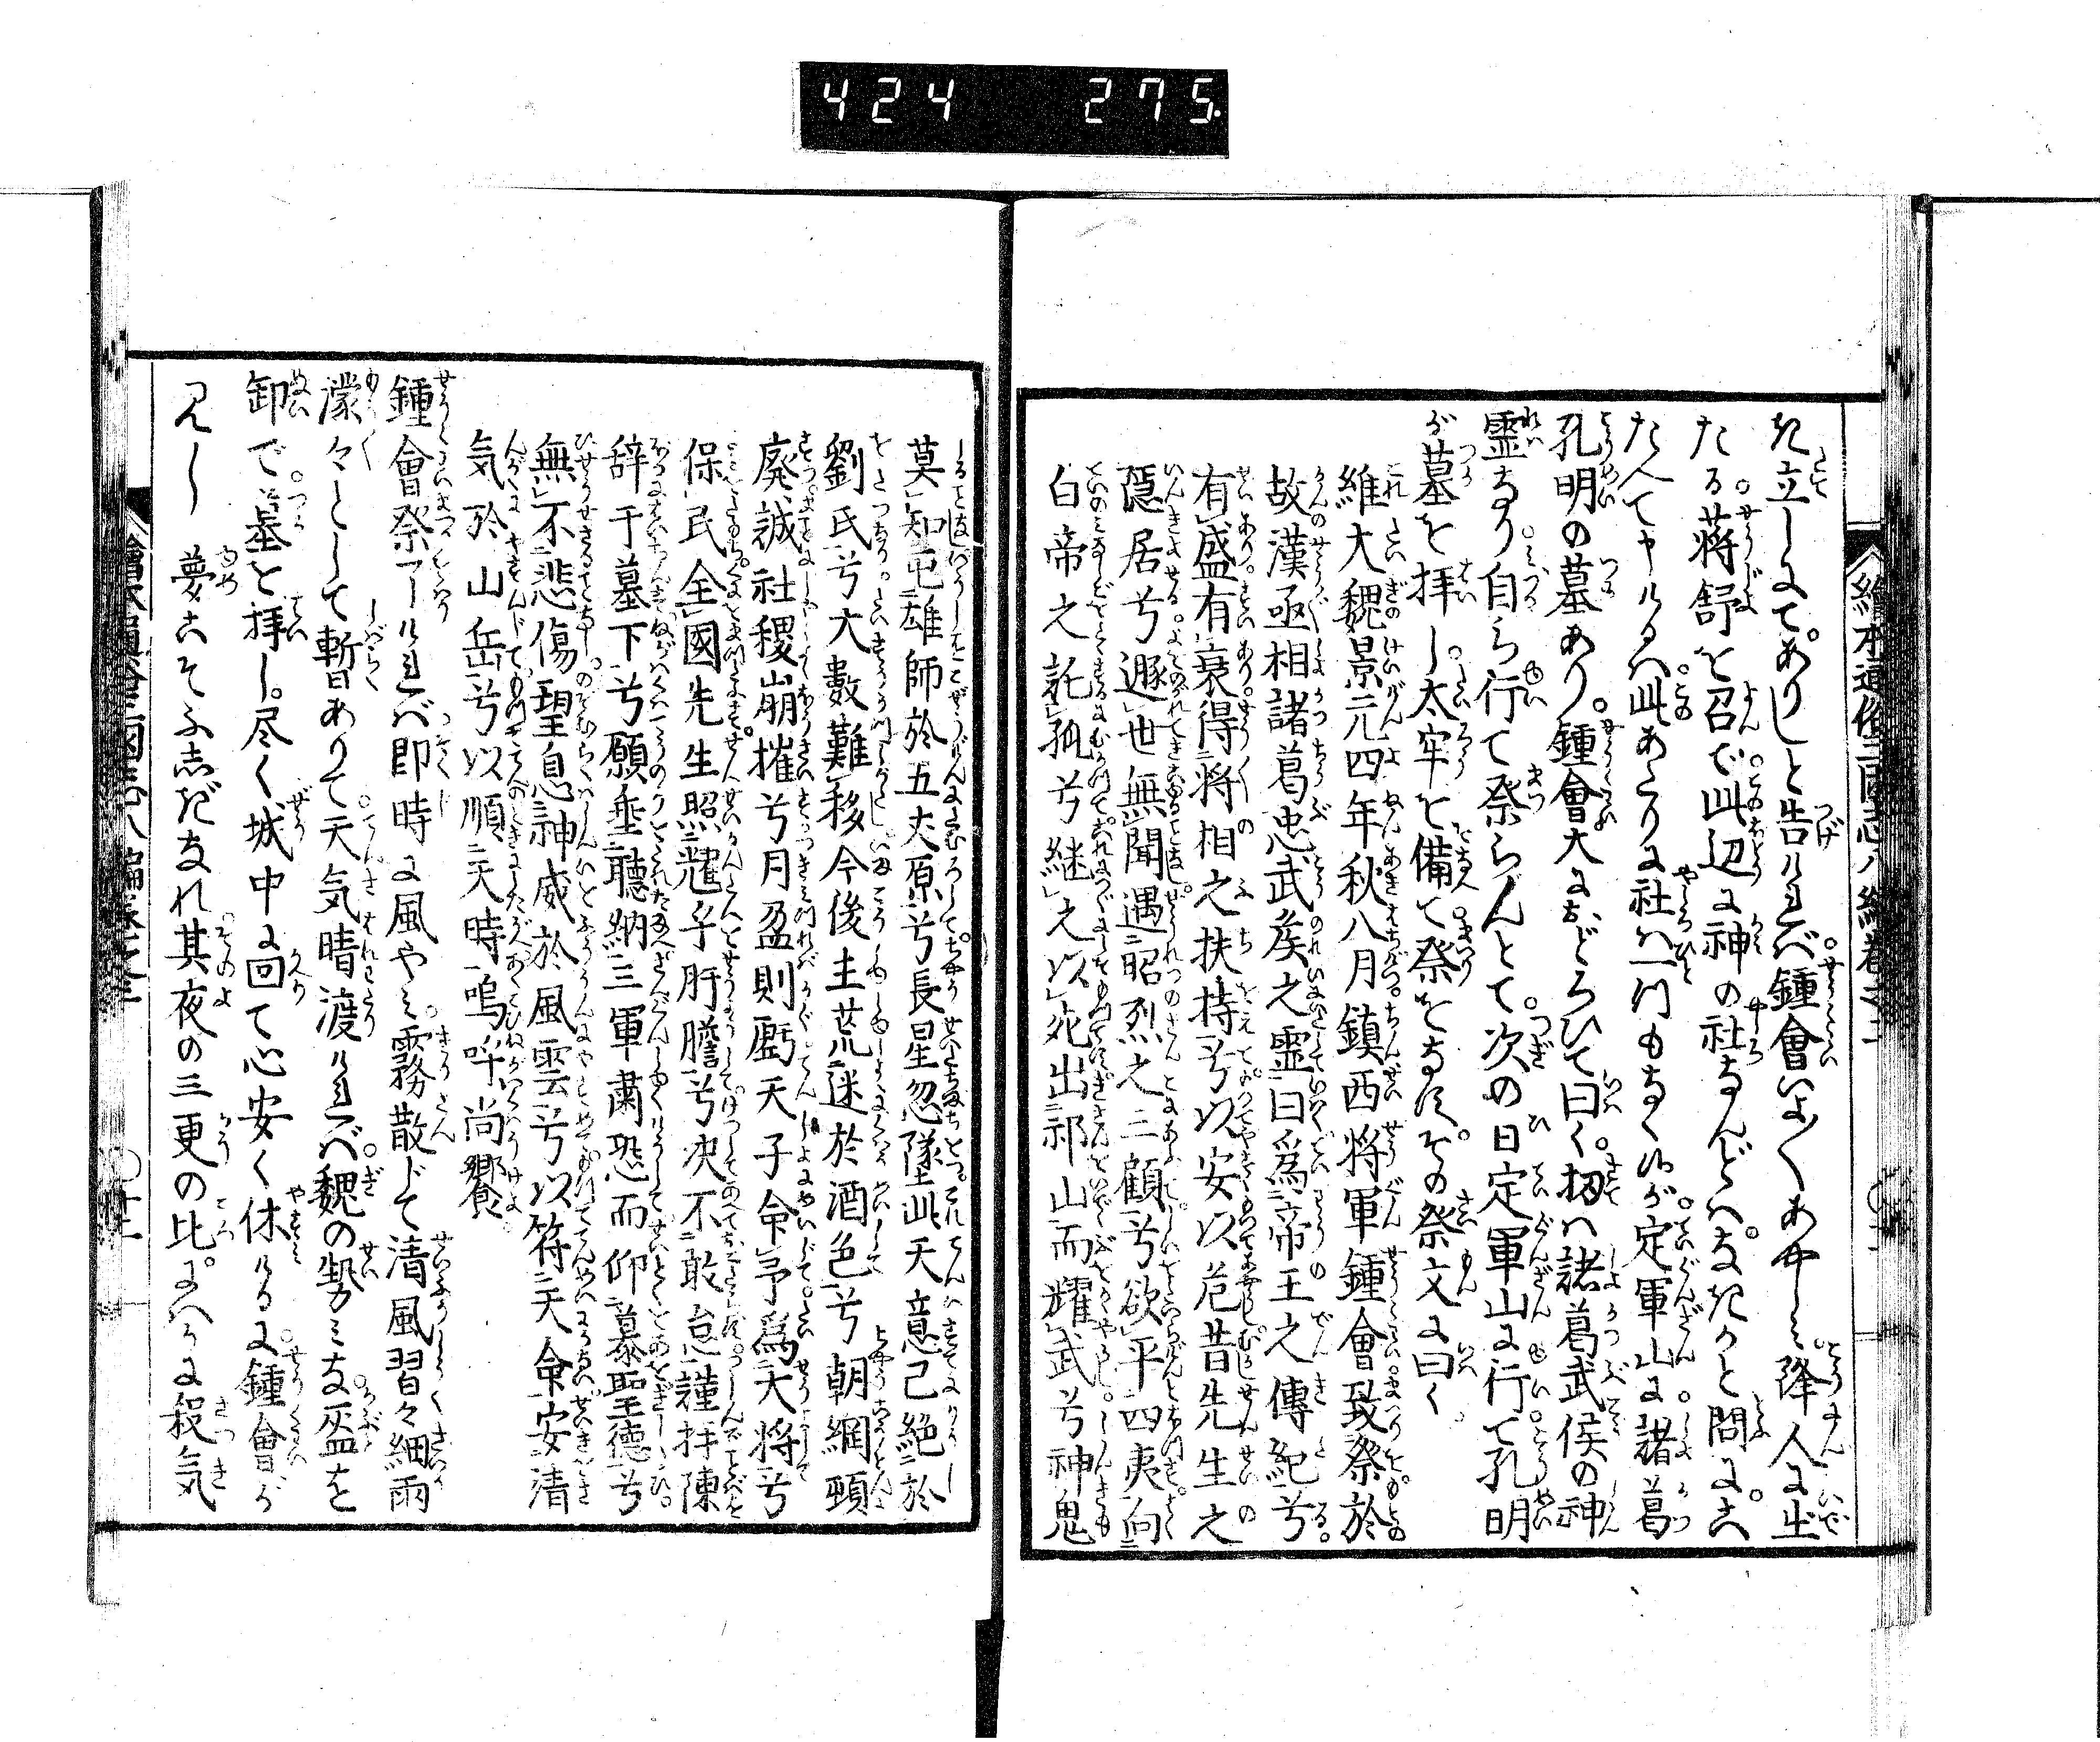 424 275.
繪本通俗三国志八編巻之二
た立しにてありしと告けれバ鍾會いよ〱あやしミ降人に出
たる蒋舒を召で此辺に神の社なんどハなきかと問に。こ
たへてやけるハ此あたりに社ハ一つもなく候が定軍山に諸葛
孔明の墓あり。鍾會大におどろひて曰く。扨ハ諸葛武侯の神
霊なり自ら行て祭らんとて。次の日定軍山に行て孔明
が墓を拝し。太牢を備て祭をなす。その祭文に曰く
維大魏景元四年秋八月鎮西将軍鍾會致祭於
故漢丞相諸葛忠武矦之霊曰爲帝王之傳紀兮
有盛有衰得将相之扶持兮以安以危昔先生之
隠居兮遯世無聞遇昭烈之三顧兮欲平四夷向
白帝之託孤兮継之以死出祁山而耀武兮神鬼
莫知屯雄師於五丈原兮長星忽墜此天意已絶於
劉氏兮大數難移今後主荒迷於酒色兮朝綱頓
廃誠社稷崩摧兮月盈則虧天子命予爲大将兮
保民全國先生照耀乎肝膽兮决不敢怠謹拝陳
辞于墓下兮願垂聽納三軍粛恐而仰慕聖徳兮
無不悲傷望息神威於風雲兮以符天命安清
気於山岳兮以順天時嗚呼尚饗
鍾會祭りけれバ即時に風やミ霧散じて清風習々細雨
濛々として暫ありて天気晴渡けれバ。魏の勢ミな盔を
卸で墓を拝し。尽く城中に回て心安く休けるに鍾會が
見し夢こそふしぎなれ其夜の三更の比。にハかに殺気